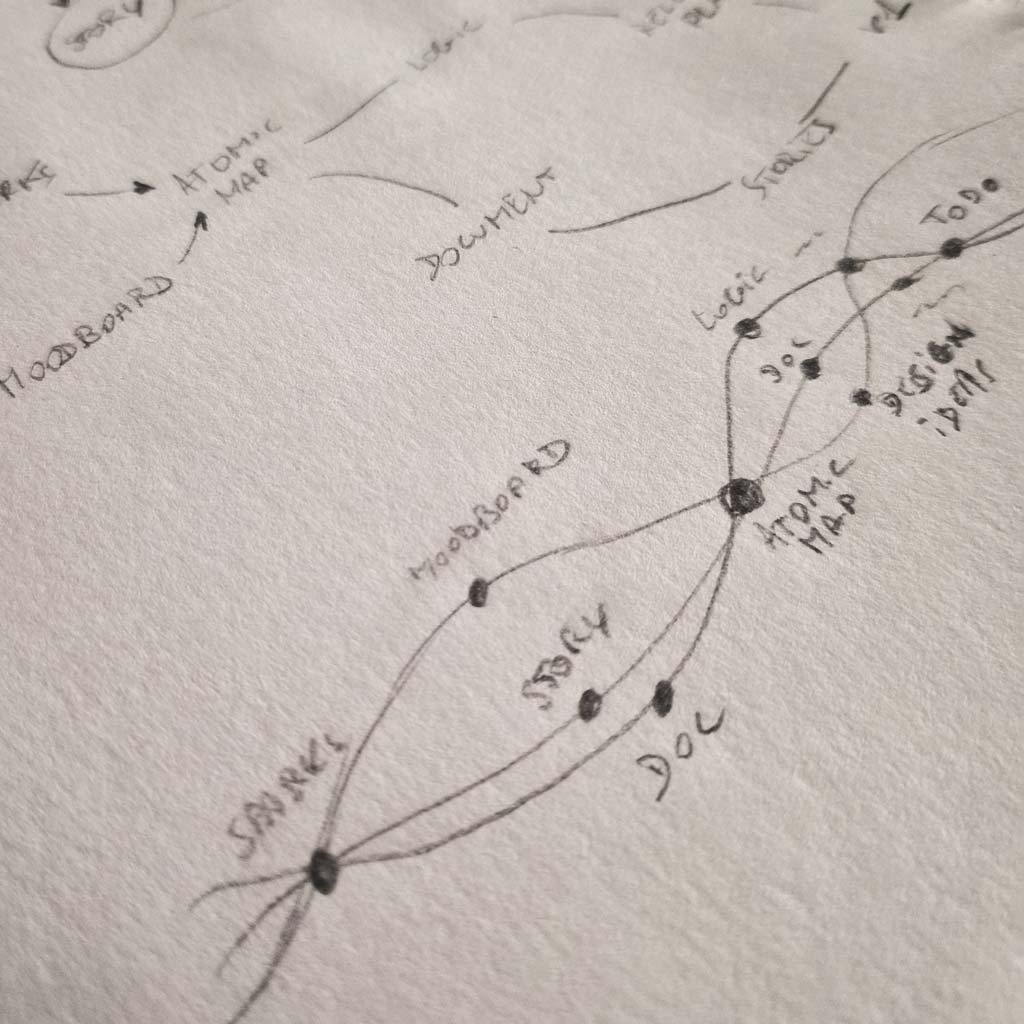 STORY
LOGIC
ATOMIC
MAP
DOCUMENT
STORIES
MOODBOARD
TODO
LOGIC
DOC
DESIGN
iDEAS
MOODBOARD
ATOMIC
MAP
STORY
DOC
SPARKS